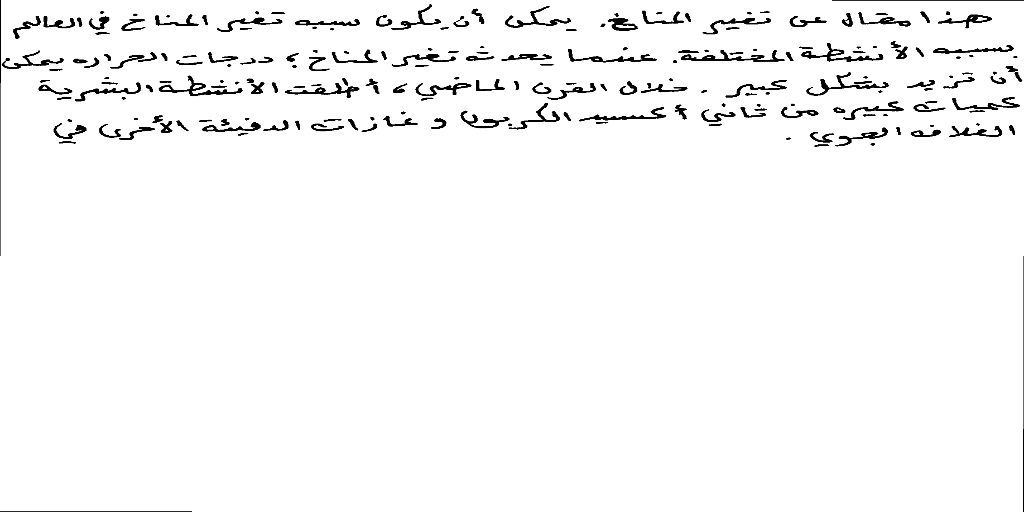 هذا مقال عن تغير المناخ. يمكن أن يكون سببه تغير المناخ في العالم
بسببه الأنشطة المختلفة. عندما يحدث تغير المناخ ؛ درجات الحراره يمكن
أن تزيد بشكل كبير . خلال القرن الماضي ، أطلقت الأنشطة البشرية
كميات كبيره من ثاني أكسيد الكربون و غازات الدفيئة الأخرى في
الغلاف الجوي .